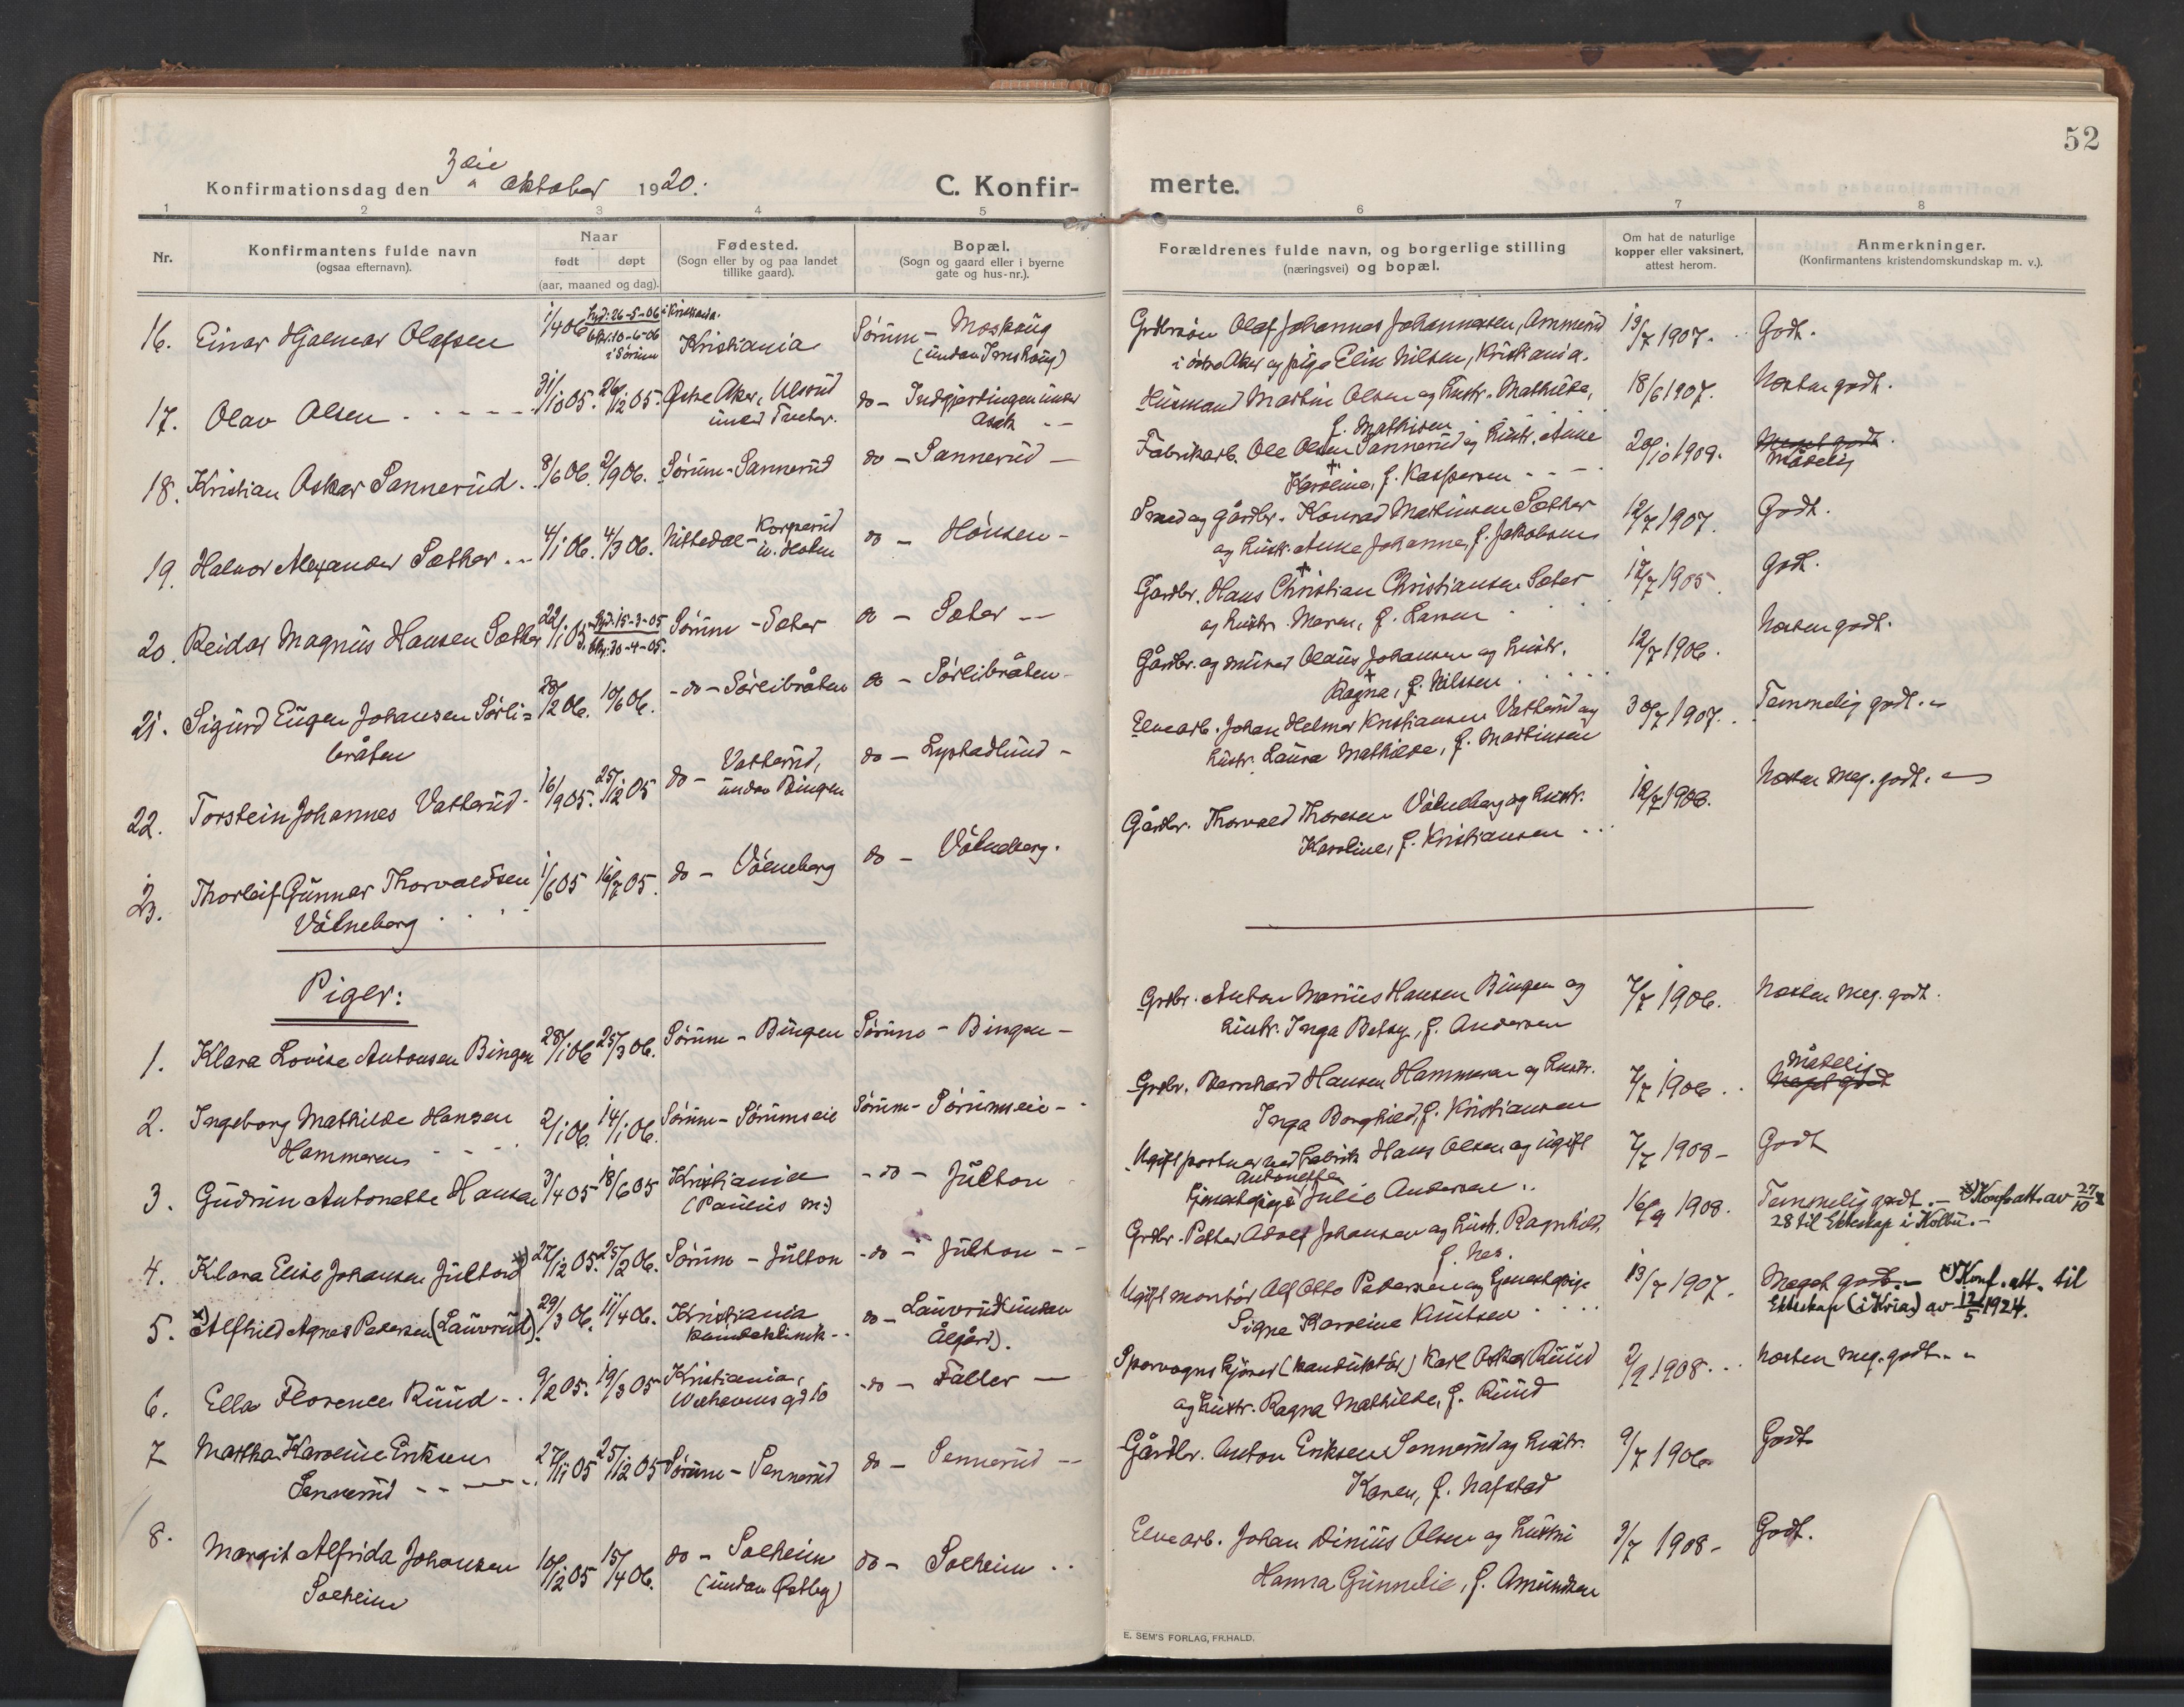 52
Konfirmationsdag den 3die oktober 1920.
C. Konfir-
merte.
1 2 3 4 5 6 7 8
Nr.
Konfirmantens fulde navn
(ogsaa efternavn).
Naar
født døpt
(aar, maaned og dag).
Fødested.
(Sogn eller by og paa landet
tillike gaard).
Bopæl.
(Sogn og gaard eller i byerne
gate og hus-nr.).
Forældrenes fulde navn, og borgerlige stilling
(næringsvei) og bopæl.
Om hat de naturlige
kopper eller vaksinert,
attest herom.
Anmerkninger.
(Konfirmantens kristendomskundskap m. v.).
16. Einar Hjalmar Olafsen 1/4 06 26-5-06 i Kristiania. 10-6-06 i Sørum Kristiania Sørum - Moshaug
Olaf Johannes Johannesen, Ammerud 13/7 1907. Godt.
i østre Aker og pige Elise Nilsen, Kristiania.
17. Olav Olsen 31/10 05. 26/12 05. Østre Aker, Ulsrud do -
Husmand Martin Olsen og hustr. Mathilde, 18/6 1907. Næsten godt.
f. Mathisen
18. Kristian Oskar Sannerud 8/6 06. 2/9 06. Sørum - Sannerud do - Sannerud -
Fabrikarb. Ole Olsen Sannerud og hustr. Anne 20/10 1909. Meget godt.
Karoline, f. Kaspersen Måtelig
19. Halvor Alexander Sæther 4/1 06. 4/3 06. Nittedal - u. Holm do - Hønsen -
Smed og gårdbr. Konrad Martinsen Sæther 12/7 1907. Godt.
og hustr. Anne Johanne, f. Jakobsen
20. Reidar Magnus Hansen Sæther 22/1 05. 15-3-05 30-4-05. Sørum - Sæter do - Sæter --
Gårdbr. Hans Christian Christiansen Sæter 12/7 1905. Godt.
og hustr. Maren, f. Larsen
21. Sigurd Eugen Johansen Sørli= 28/2 06. 10/6 06. - do - Sørlibråten do - Sørlibråten -
bråten
Gårdbr. og murer Olaus Johansen og hustr. 12/7 1906. Næsten godt.
Ragna, f. Nilsen
22. Torstein Johannes Vatterud 16/9 05. 25/12 05 do - Vatterud, do - Lystadlund -
under Bingen
Elvearb. Johan Helmer Kristiansen Vatterud og 30/7 1907. Temmelig godt.
hustr. Laura Mathilde, f. Martinsen
23. Thorleif Gunnar Thorvaldsen 1/6 05 16/7 05. do - Vølneberg do - Vølneberg.
Vølneberg
Gårdbr. Thorvald Thoresen Vølneberg og hustr. 12/7 1906. Næsten meg. godt.
Karoline, f. Kristiansen
Piger:
1. Klara Lovise Antonsen Bingen 28/1 06 25/3 06. Sørum - Bingen Sørum - Bingen -
Grdbr. Anton Marius Hansen Bingen og 7/7 1906. Næsten meg. godt.
hustr. Inga Betsy, f. Andersen
2. Ingeborg Mathilde Hansen 2/1 06 14/1 06. Sørum - Sørumseie Sørum - Sørumseie -
Hammeren
Grdbr. Bernhard Hansen Hammeren og hustr. 7/7 1906. Måtelig
Inga Borghild, f. Kristiansen Meget godt
3. Gudrun Antonette Hansen 3/4 05 18/6 05 Kristiania - do - Julton
(Paulus m:)
Ugift portner ved fabrik Hans Olsen og ugift 7/7 1908 - Godt
Antonette
tjenestepige Julie Andersen
4. Klara Elise Johansen Julton x) 27/12 05. 25/2 06. Sørum - Julton - do - Julton --
Grdbr. Petter Adolf Johansen og hustr. Ragnhild, 16/9 1908. Temmelig godt. - x) Konf. att. av 27/10
f. Nes. 28 til Ekteskap i Kolbu. -
5. x) Alfhild Agnes Petersen (Lauvrud). 29/3 06. 11/4 06. Kristiania do - Lauvrud (under
Ålgård).
Ugift montør Alf Otto Petersen og tjenestepige 13/7 1907. Meget godt. - x) Konf. att. til
Signe Karoline Knutsen Ekteskap (i Kria.) av 12/5 1924.
6. Ella Florence Ruud 9/2 05. 19/3 05 Kristiania, do - Faller -
Sporvogns (konduktør) Karl Oskar Ruud 2/9 1908. Næsten meg. godt.
og hustr. Ragna Mathilde, f. Ruud
7 Martha Karoline Eriksen 27/11 05 25/12 05 Sørum - Sennerud do - Sennerud --
Sennerud
Gårdbr. Anton Eriksen Sennerud og hustr. 9/7 1906 Godt
Karen, f. Nafstad
8. Margit Alfrida Johansen 10/12 05 15/4 06. do - Solheim do - Solheim
Solheim (under Østby)
Elvearb. Johan Dinius Olsen og hustru 3/7 1908 - Godt.
Hanna Gunnelie, f. Amundsen
E. SEM'S FORLAG, FR.HALD.